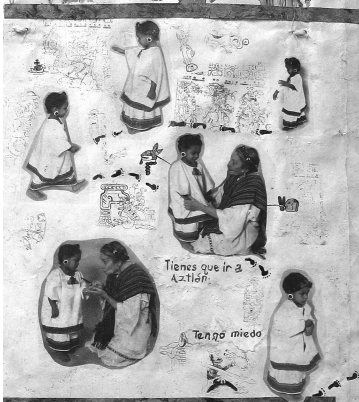 Tienes que ir a
Aztlán.
Tengo miedo